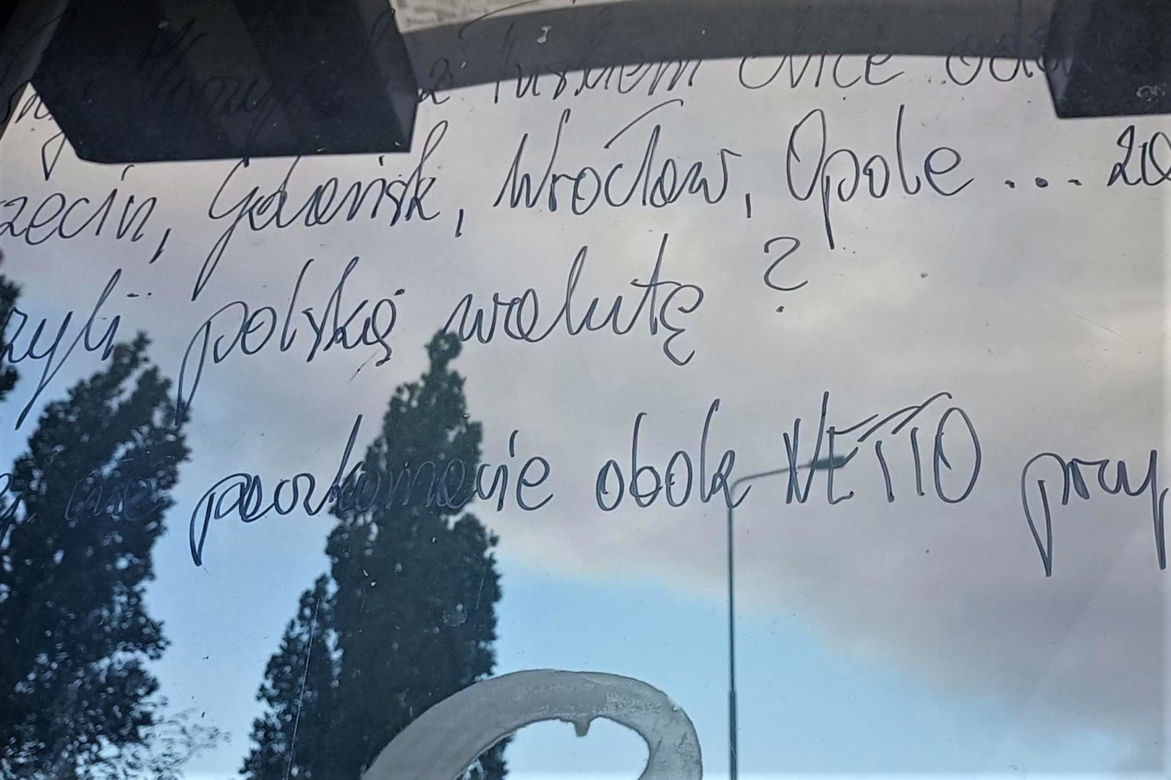 z Tuskiem chce
zecin, Gdańsk, Wrocław, Opole ... 20
zyli polską walutę ?
nie parkomacie obok NETTO przy